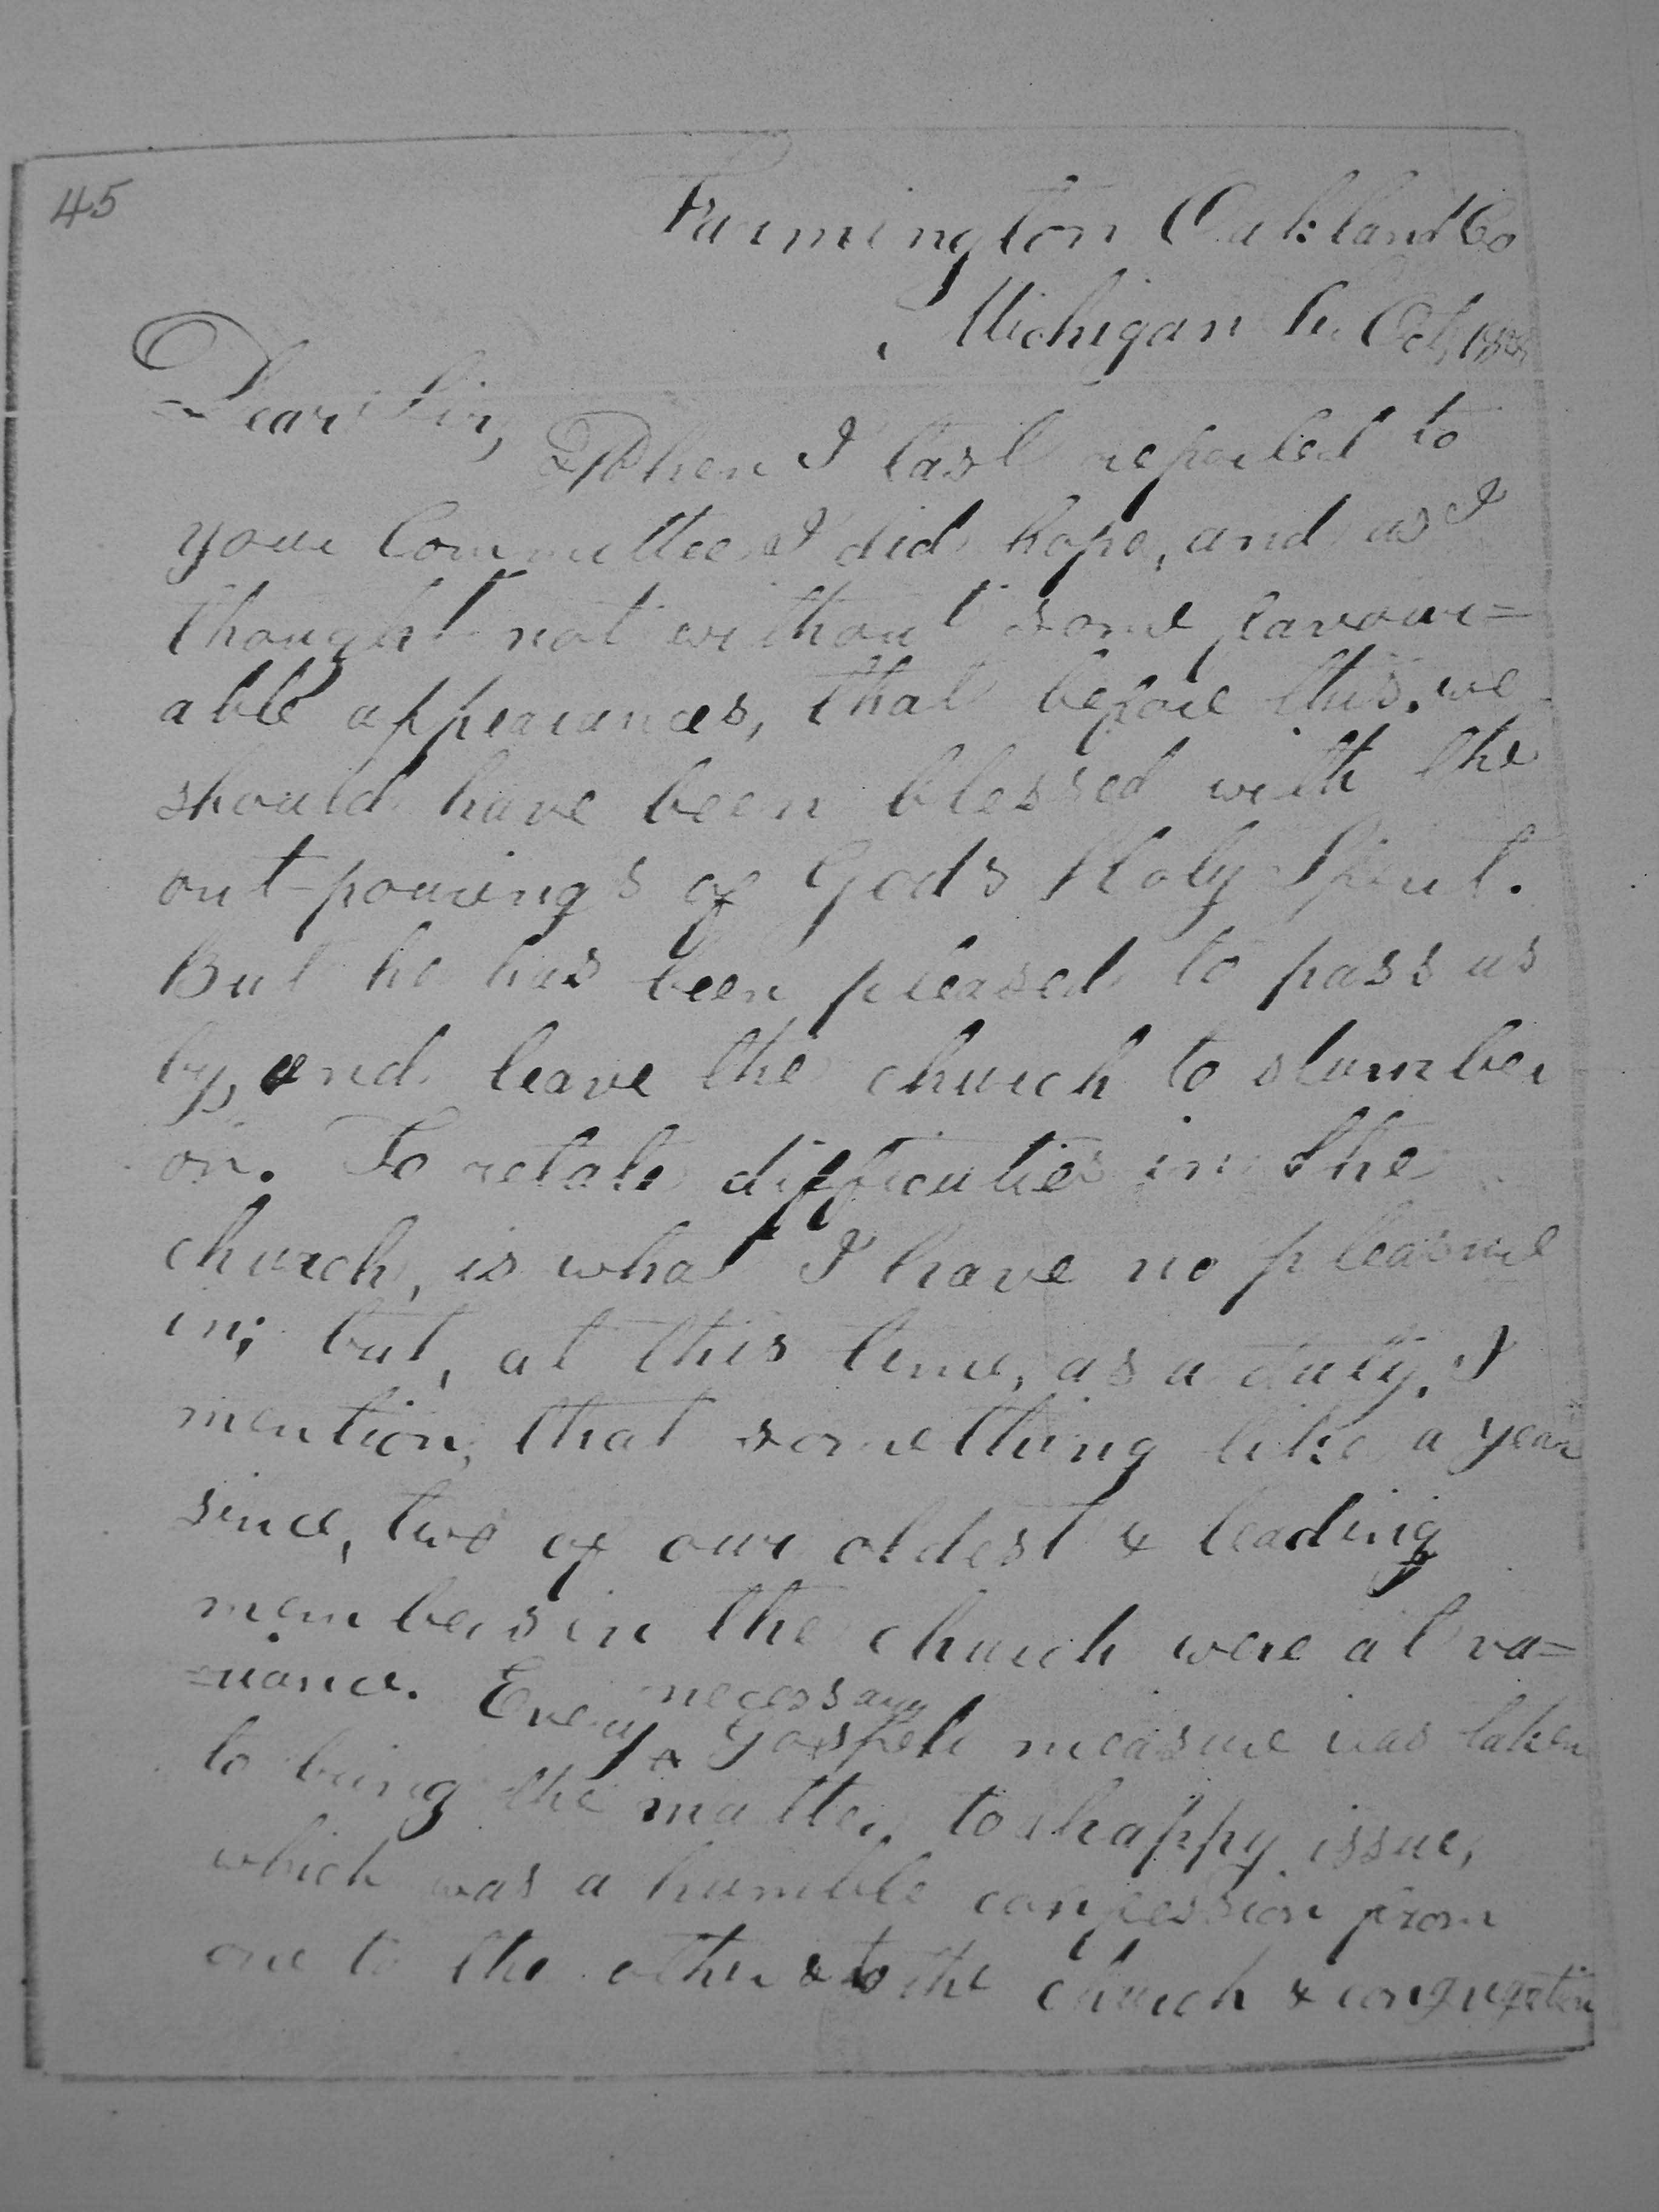 45
Farmington Oakland Co
Michigan Oct,
Dear Sir,
When I last reported to
your Committee I did hope, and as I
thought not without some favour=
able appearances, that before this, we
should have been blessed with the
out-pourings of Gods Holy Spirit.
But he has been pleased to pass us
by, and leave the church to slumber
on. To relate difficulties in the
church, is what I have no pleasure
in; but, at this time, as a duty, I
mention, that something like a year
since, two of our oldest & leading
members in the church were at va=
=riance. Every necessary Gospel measure was taken
to bring the matter to a happy issue,
which was a humble confession from
one to the other & to the church & congregation